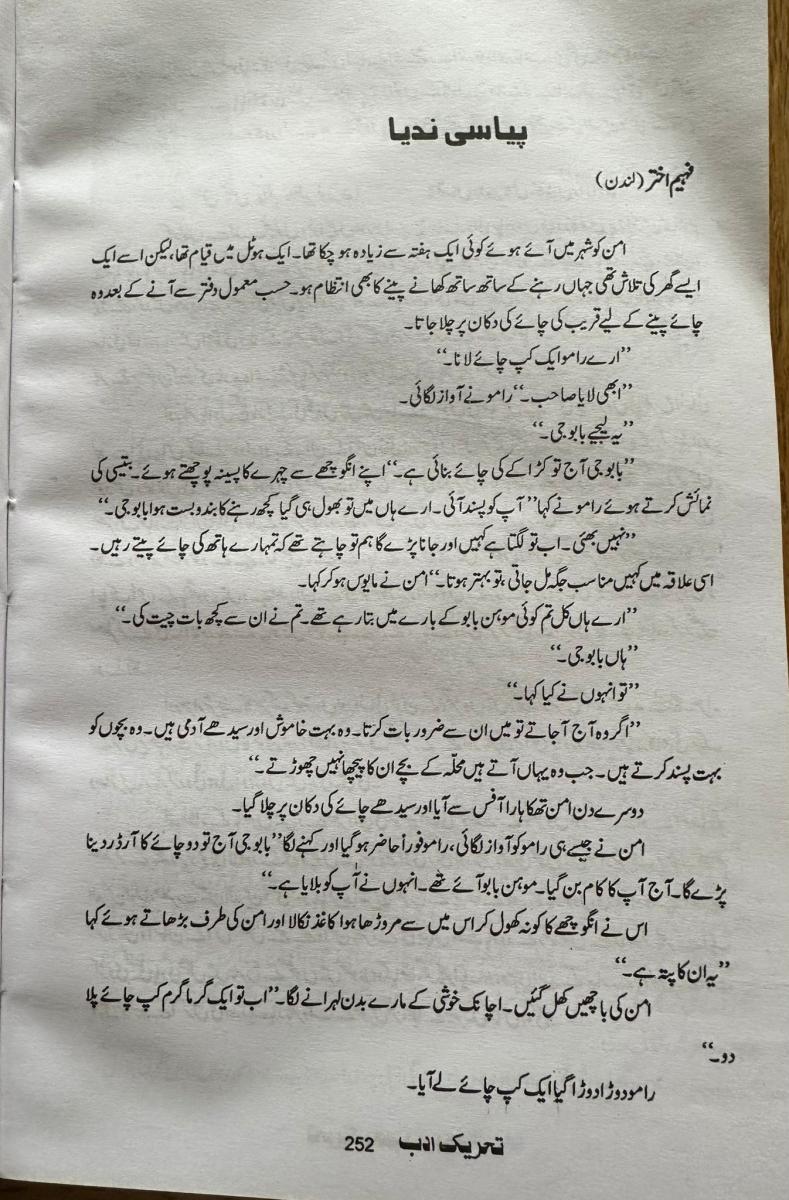 پیاسی ندیا
فہیم اختر (لندن)
امن کو شہر میں آئے ہوئے کوئی ایک ہفتہ سے زیادہ ہو چکا تھا۔ ایک ہوٹل میں قیام تھا، لیکن اسے ایک
ایسے گھر کی تلاش تھی جہاں رہنے کے ساتھ ساتھ کھانے پینے کا بھی انتظام ہو۔ حسب معمول دفتر سے آنے کے بعد وہ
چائے پینے کے لیے قریب کی چائے کی دکان پر چلا جاتا۔
’’ارے رامو ایک کپ چائے لانا۔‘‘
’’ابھی لایا صاحب۔‘‘ رامو نے آواز لگائی۔
’’یہ لیجیے بابو جی۔‘‘
’’بابو جی آج تو کڑاکے کی چائے بنائی ہے۔‘‘ اپنے انگوچھے سے چہرے کا پسینہ پوچھتے ہوئے۔ بتیسی کی
نمائش کرتے ہوئے رامو نے کہا ’’آپ کو پسند آئی۔ ارے ہاں میں تو بھول ہی گیا کچھ رہنے کا بندوبست ہوا بابو جی۔‘‘
’’نہیں بھئی۔ اب تو لگتا ہے کہیں اور جانا پڑے گا ہم تو چاہتے تھے کہ تمہارے ہاتھ کی چائے پیتے رہیں۔
اسی علاقہ میں کہیں مناسب جگہ مل جاتی، تو بہتر ہوتا۔‘‘ امن نے مایوس ہو کر کہا۔
’’ارے ہاں کل تم کوئی موہن بابو کے بارے میں بتا رہے تھے۔ تم نے ان سے کچھ بات چیت کی۔‘‘
’’ہاں بابو جی۔‘‘
’’تو انہوں نے کیا کہا۔‘‘
’’اگر وہ آج آ جاتے تو میں ان سے ضرور بات کرتا۔ وہ بہت خاموش اور سیدھے آدمی ہیں۔ وہ بچوں کو
بہت پسند کرتے ہیں۔ جب وہ یہاں آتے ہیں محلّہ کے بچے ان کا پیچھا نہیں چھوڑتے۔‘‘
دوسرے دن امن تھکا ہارا آفس سے آیا اور سیدھے چائے کی دکان پر چلا گیا۔
امن نے جیسے ہی رامو کو آواز لگائی، رامو فوراً حاضر ہو گیا اور کہنے لگا ’’بابو جی آج تو دو چائے کا آرڈر دینا
پڑے گا۔ آج آپ کا کام بن گیا۔ موہن بابو آئے تھے۔ انہوں نے آپ کو بلایا ہے۔‘‘
اس نے انگوچھے کا کونہ کھول کر اس میں سے مروڑھا ہوا کاغذ نکالا اور امن کی طرف بڑھاتے ہوئے کہا
’’یہ ان کا پتہ ہے۔‘‘
امن کی باچھیں کھل گئیں۔ اچانک خوشی کے مارے بدن لہرانے لگا۔ ’’اب تو ایک گرما گرم کپ چائے پلا
دو۔‘‘
رامو دوڑا دوڑا گیا ایک کپ چائے لے آیا۔
تحریک ادب 252